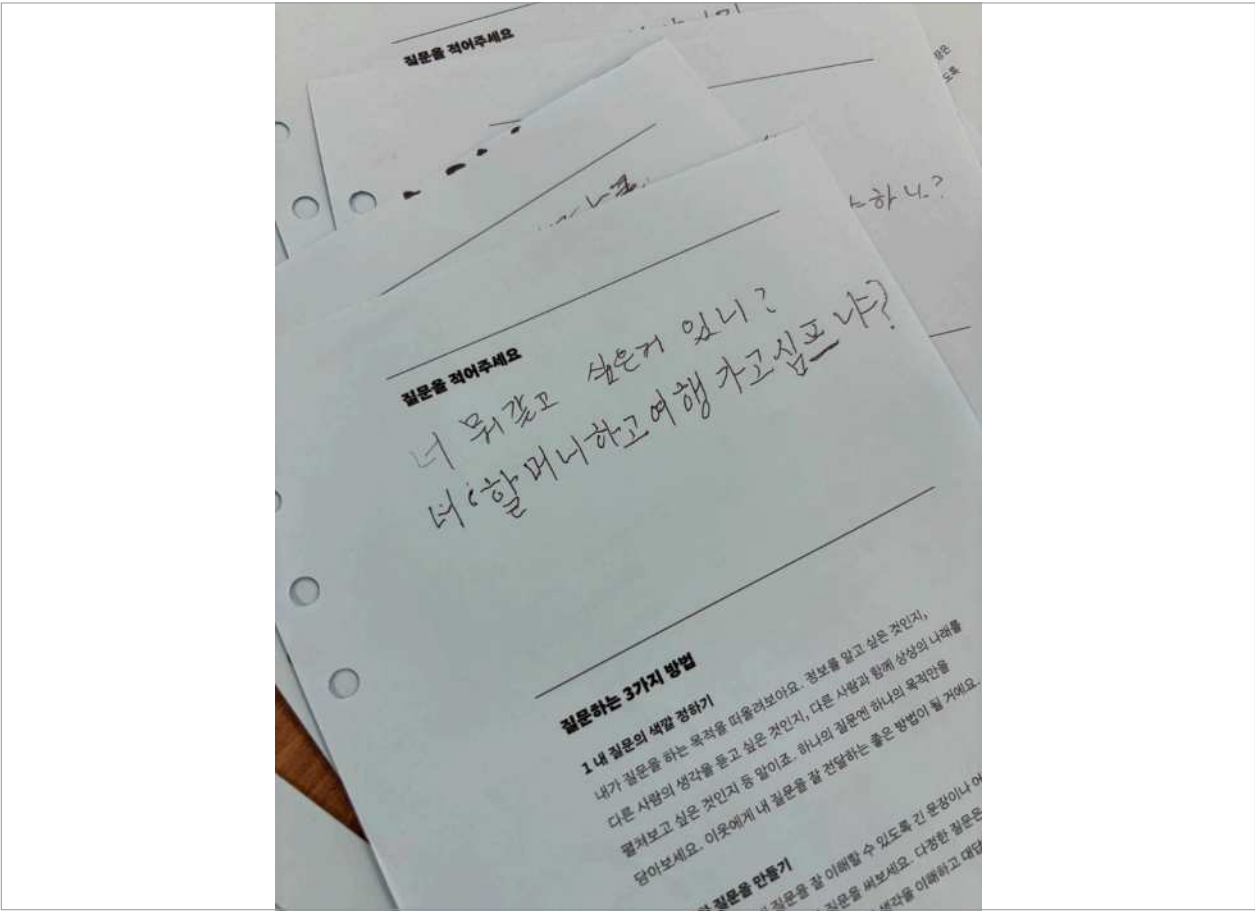 질문을 적어주세요
장은
도록
하니?
질문을 적어주세요
너 뭐갖고 싶은거 있니?
너 할머니하고여행 가고십프냐?
질문하는 3가지 방법
1 내 질문의 색깔 정하기
내가 질문을 하는 목적을 떠올려보아요. 정보를 알고 싶은 것인지,
다른 사람의 생각을 듣고 싶은 것인지, 다른 사람과 함께 상상의 나래를
펼쳐보고 싶은 것인지 등 말이죠. 하나의 질문엔 하나의 목적만을
담아보세요. 이웃에게 내 질문을 잘 전달하는 좋은 방법이 될 거예요.
질문을 만들기
질문을 잘 이해할 수 있도록 긴 문장이나 어
질문을 써보세요. 다정한 질문은
생각을 이해하고 대답